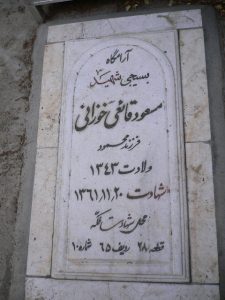 آرامگاه
بسیجی شهید
مسعود قاضی خوزانی
فرزند محمود
ولادت ۱۳۴۳
شهادت ۱۳۶۱٫۱۱٫۲۰
محل شهادت فکه
قطعه ۲۸ ردیف ۶۵ شماره ۱۰